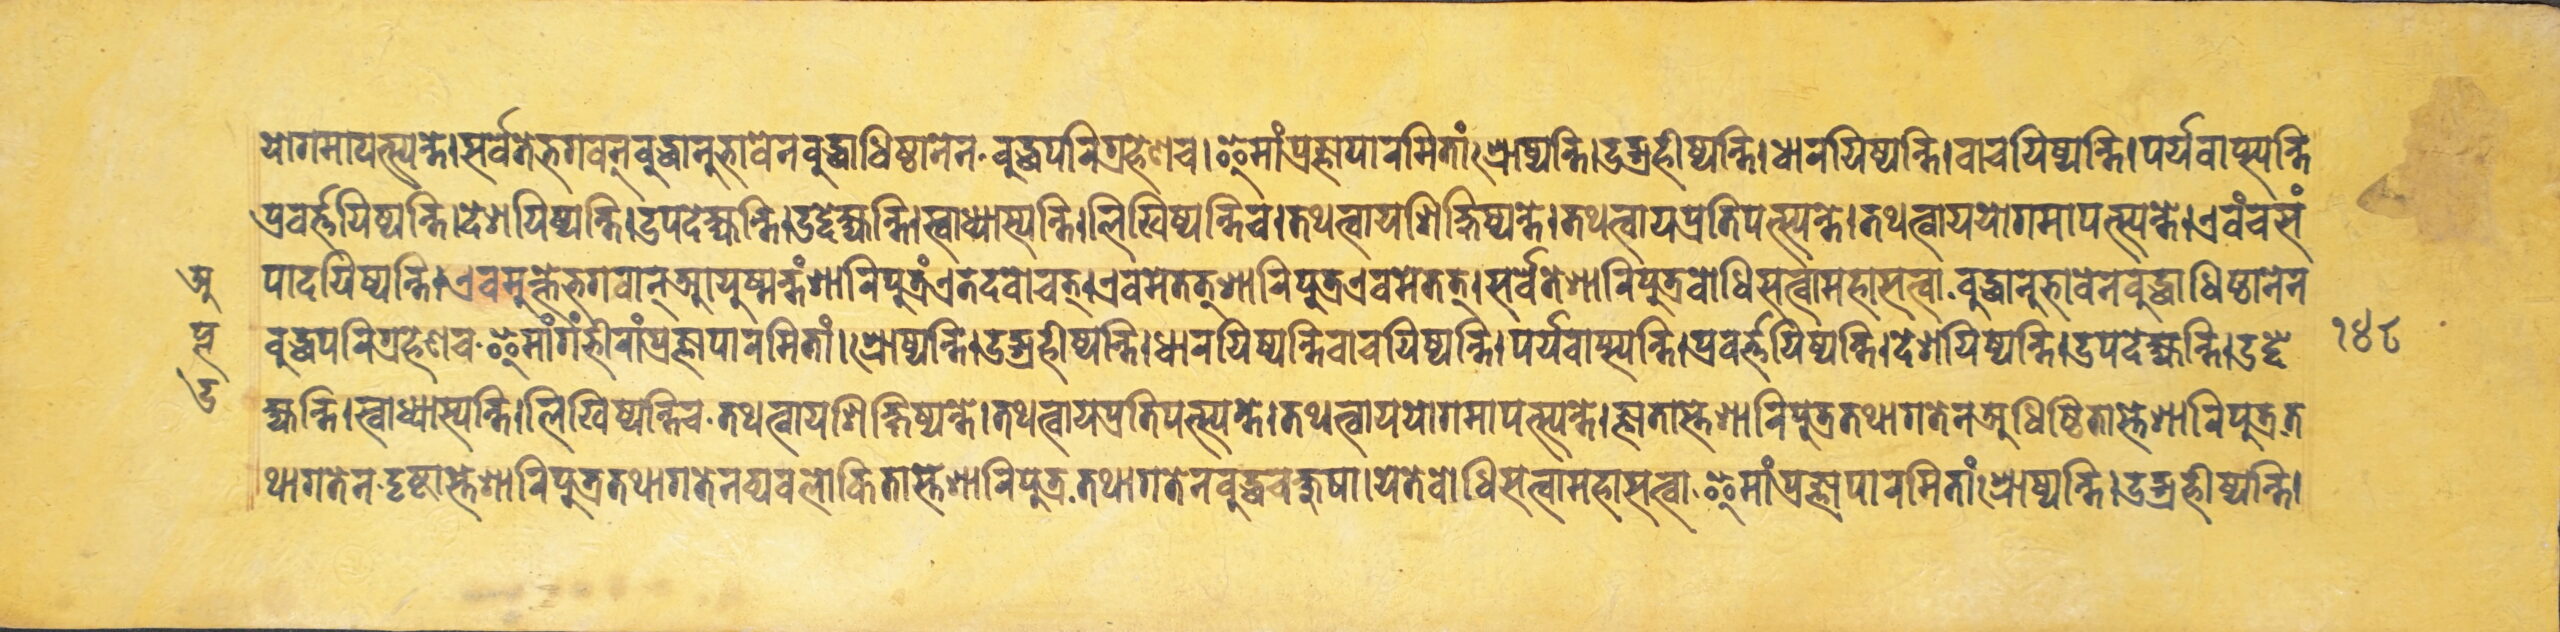 योगमापत्स्यन्ते।सर्वेतेभगवन्बुद्धानुभावेनबुद्धाधिष्ठानेन बुद्धपरिग्रहेणच।इमांप्रज्ञापारमितांश्रोष्यन्ति।उद्ग्रहीष्यन्ति।धारयिष्यन्ति।वाचयिष्यन्ति।पर्यवाप्स्यन्ति
प्रवर्त्तयिष्यन्ति।देशयिष्यन्ति।उपदेक्ष्यन्ति।उद्देक्ष्यन्ति।स्वाध्यास्यन्ति।लिखिष्यन्तिच।तथत्वायशिक्षिष्यन्ते।तथत्वायप्रतिपत्स्यन्ते।तथत्वाययोगमापत्स्यन्ते।एवंचसं
पादयिष्यन्ति।एवमुक्तेभगवान्आयुष्मन्तंशारिपुत्रंएतदवोचत्।एवमेतत्शारिपुत्रएवमेतत्।सर्वेतेशारिपुत्रबोधिसत्वामहासत्वा बुद्धानुभावेनबुद्धाधिष्ठानेन
बुद्धपरिग्रहेणच इमांगंभीरांप्रज्ञापारमितां।श्रोष्यन्ति।उद्ग्रहीष्यन्ति।धारयिष्यन्तिवाचयिष्यन्ति।पर्यवाप्स्यन्ति।प्रवर्त्तयिष्यन्ति।देशयिष्यन्ति।उपदेक्ष्यन्ति।उद्दे
क्ष्यन्ति।स्वाध्यास्यन्ति।लिखिष्यन्तिच तथत्वायशिक्षिष्यन्ते।तथत्वायप्रतिपत्स्यन्ते।तथत्वाययोगमापत्स्यन्ते।ज्ञातास्तेशारिपुत्रतथागतेनअधिष्ठितास्तेशारिपुत्र त
थागतेन दृष्टास्तेशारिपुत्रतथागतेनव्यवलोकितास्तेशारिपुत्र तथागतेनबुद्धचक्षुषा।येतेबोधिसत्वामहासत्वा इमांप्रज्ञापारमितांश्रोष्यन्ति।उद्ग्रहीष्यन्ति।
अ
प्र
उ
१४८